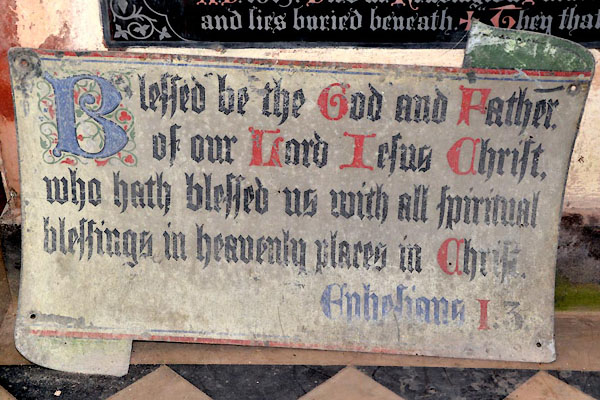 and lies buried beneath ✠ They that
Blessed be the God and Father,
of our Lord Iesus Christ,
who hath blessed us with all spiritual
blessings in heavenly places in Christ.
Ephesians I.3.